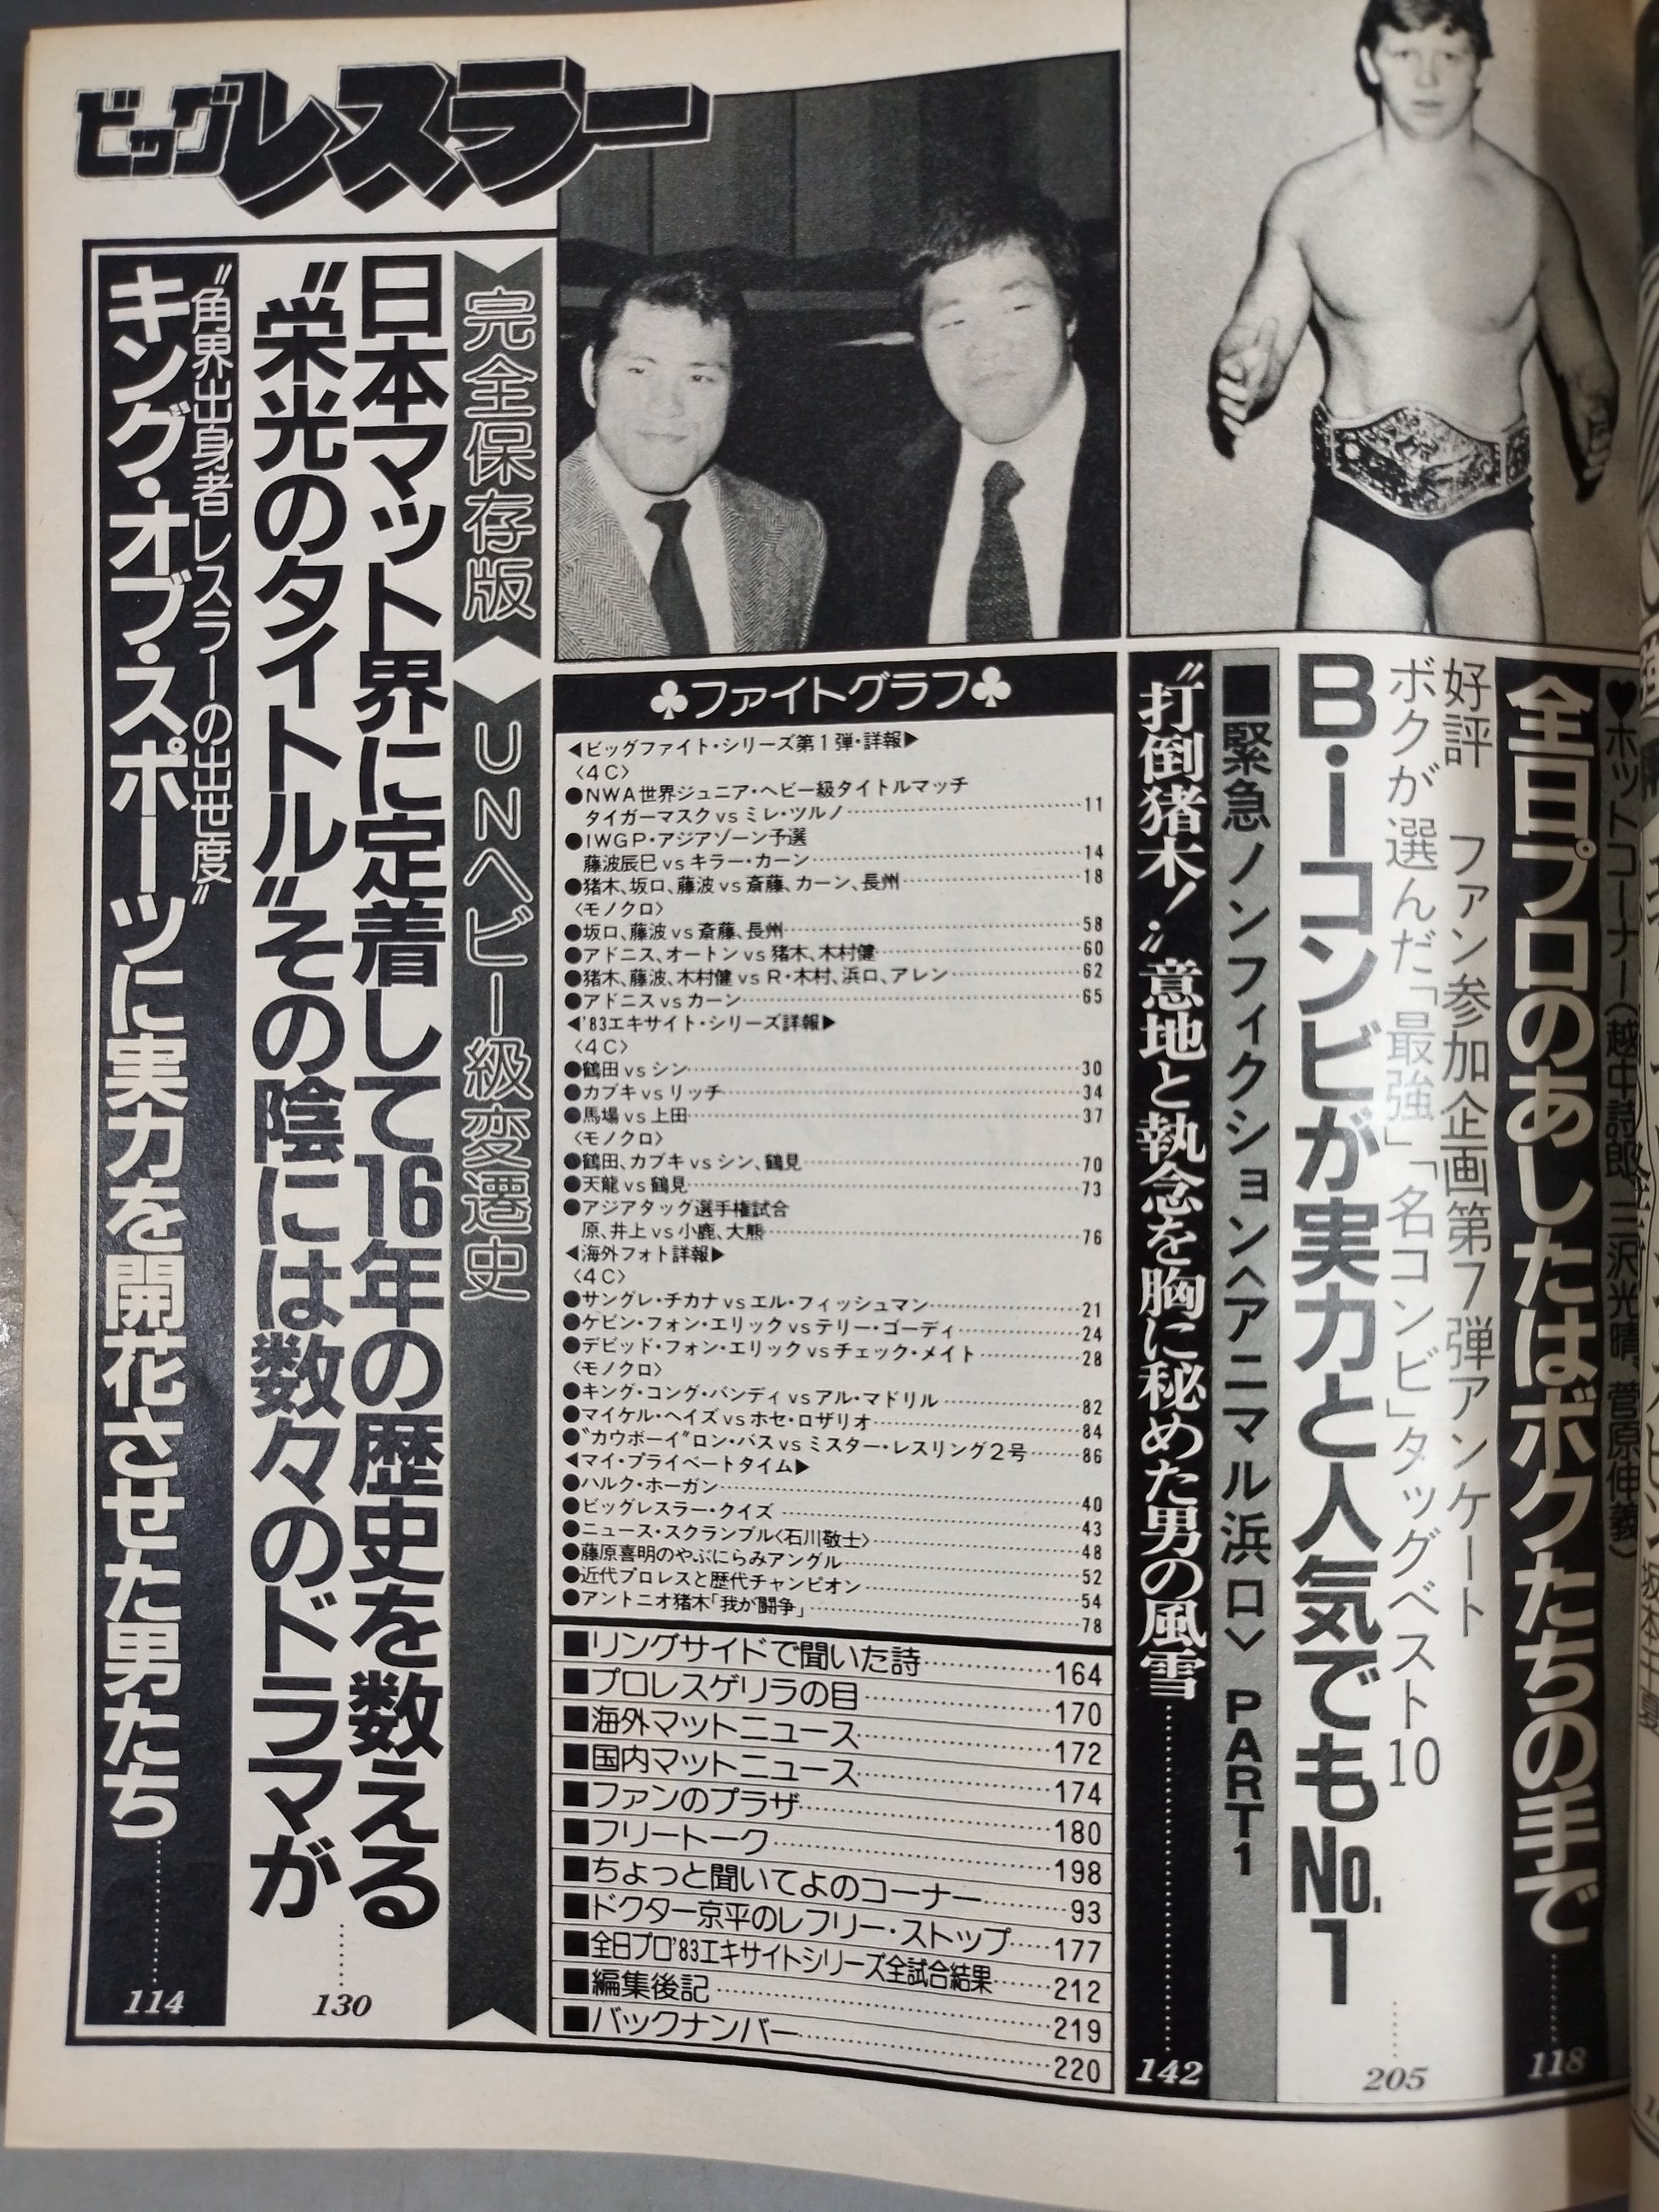 ビッグレスラー
♥ホットコーナー(越中詩郎、三沢光晴、菅原伸義)
全日プロのあしたはボクたちの手で……118
好評 ファン参加企画第7弾アンケート
ボクが選んだ「最強」「名コンビ」タッグベスト10
B・Iコンビが実力と人気でもNo.1……205
■緊急ノンフィクション〈アニマル浜口〉PART1
〝打倒猪木!〟意地と執念を胸に秘めた男の風雪……142
♣ファイトグラフ♣
◀ビッグファイト・シリーズ第1弾・詳報▶
〈4C〉
●NWA世界ジュニア・ヘビー級タイトルマッチ
タイガーマスクvsミレ・ツルノ……11
●IWGP・アジアゾーン予選
藤波辰巳vsキラー・カーン……14
●猪木、坂口、藤波vs斎藤、カーン、長州……18
〈モノクロ〉
●坂口、藤波vs斎藤、長州……58
●アドニス、オートンvs猪木、木村健……60
●猪木、藤波、木村健vsR・木村、浜口、アレン……62
●アドニスvsカーン……65
◀'83エキサイト・シリーズ詳報▶
〈4C〉
●鶴田vsシン……30
●カブキvsリッチ……34
●馬場vs上田……37
〈モノクロ〉
●鶴田、カブキvsシン、鶴見……70
●天龍vs鶴見……73
●アジアタッグ選手権試合
原、井上vs小鹿、大熊……76
◀海外フォト詳報▶
〈4C〉
●サングレ・チカナvsエル・フィッシュマン……21
●ケビン・フォン・エリックvsテリー・ゴーディ……24
●デビッド・フォン・エリックvsチェック・メイト……28
〈モノクロ〉
●キング・コング・バンディvsアル・マドリル……82
●マイケル・ヘイズvsホセ・ロザリオ……84
●〝カウボーイ〟ロン・バスvsミスター・レスリング2号……86
◀マイ・プライベートタイム▶
●ハルク・ホーガン……40
●ビッグレスラー・クイズ……43
●ニュース・スクランブル〈石川敬士〉……48
●藤原喜明のやぶにらみアングル……52
●近代プロレスと歴代チャンピオン……54
●アントニオ猪木「我が闘争」……78
■リングサイドで聞いた詩……164
■プロレスゲリラの目……170
■海外マットニュース……172
■国内マットニュース……174
■ファンのプラザ……180
■フリートーク……198
■ちょっと聞いてよのコーナー……93
■ドクター京平のレフリー・ストップ……177
■全日プロ'83エキサイトシリーズ全試合結果……212
■編集後記……219
■バックナンバー……220
完全保存版
UNヘビー級変遷史
日本マット界に定着して16年の歴史を数える
〝栄光のタイトル〟その陰には数々のドラマが……130
〝角界出身者レスラーの出世度〟
キング・オブ・スポーツに実力を開花させた男たち……114